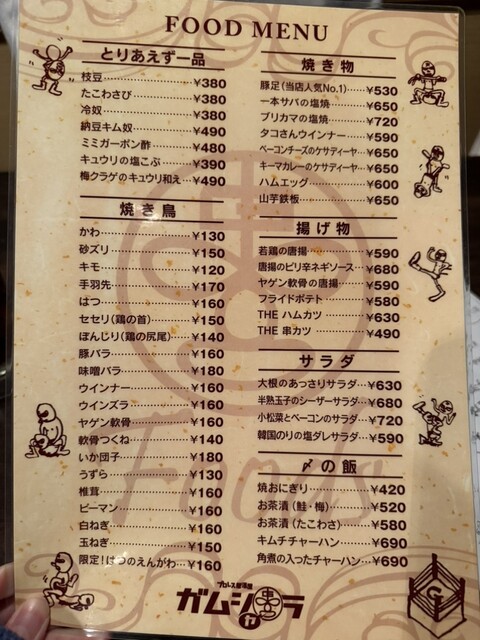 FOOD MENU
とりあえず一品
枝豆 ¥380
たこわさび ¥380
冷奴 ¥380
納豆キム奴 ¥490
ミミガーポン酢 ¥480
キュウリの塩こぶ ¥390
梅クラゲのキュウリ和え ¥490
焼き鳥
かわ ¥130
砂ズリ ¥150
キモ ¥120
手羽先 ¥170
はつ ¥160
セセリ(鶏の首) ¥150
ぼんじり(鶏の尻尾) ¥140
豚バラ ¥160
味噌バラ ¥180
ウインナー ¥160
ウインズラ ¥160
ヤゲン軟骨 ¥160
軟骨つくね ¥140
いか団子 ¥180
うずら ¥130
椎茸 ¥160
ピーマン ¥160
白ねぎ ¥160
玉ねぎ ¥150
限定!はつのえんがわ ¥160
焼き物
豚足(当店人気No.1) ¥530
一本サバの塩焼 ¥650
ブリカマの塩焼 ¥720
タコさんウインナー ¥590
ベーコンチーズのケサディーヤ ¥650
キーマカレーのケサディーヤ ¥650
ハムエッグ ¥600
山芋鉄板 ¥650
揚げ物
若鶏の唐揚 ¥590
唐揚のピリ辛ネギソース ¥680
ヤゲン軟骨の唐揚 ¥590
フライドポテト ¥580
THE ハムカツ ¥630
THE 串カツ ¥490
サラダ
大根のあっさりサラダ ¥630
半熟玉子のシーザーサラダ ¥680
小松菜とベーコンのサラダ ¥720
韓国のりの塩ダレサラダ ¥590
〆の飯
焼おにぎり ¥420
お茶漬(鮭・梅) ¥520
お茶漬(たこわさ) ¥580
キムチチャーハン ¥690
角煮の入ったチャーハン ¥690
Foods
プロレス居酒屋
ガムシャラ
G